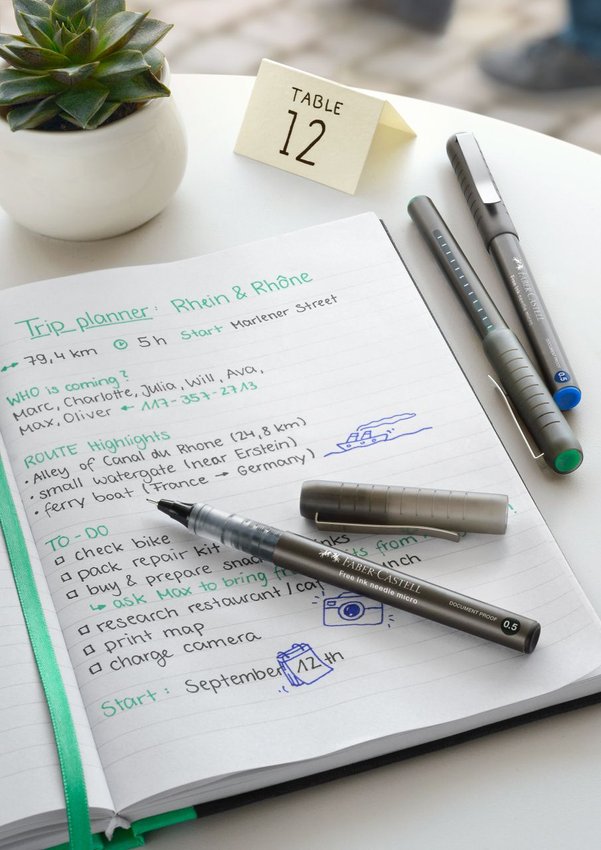 TABLE
12
Trip planner: Rhein & Rhône
↔ 79,4 km 5 h Start Marlener Street
WHO is coming?
Marc, Charlotte, Julia, Will, Ava,
Max, Oliver ← 117-357-2713
ROUTE Highlights
· Alley of Canal du Rhone (24,8 km)
· small watergate (near Erstein)
· ferry boat (France → Germany)
TO-DO
□ check bike
□ pack repair kit
□ buy & prepare
↳ ask Max to bring from
□ research restaurant /
□ print map
□ charge camera
Start: September 12 th
FABER-CASTELL
Free Ink needle micro
DOCUMENT PROOF
0.5
FABER-CASTELL
0.5